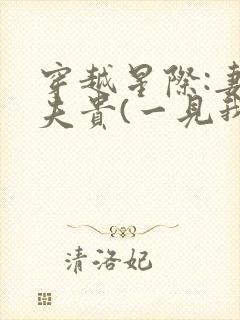 穿越星際:妻
夫貴(一見我
清洛妃